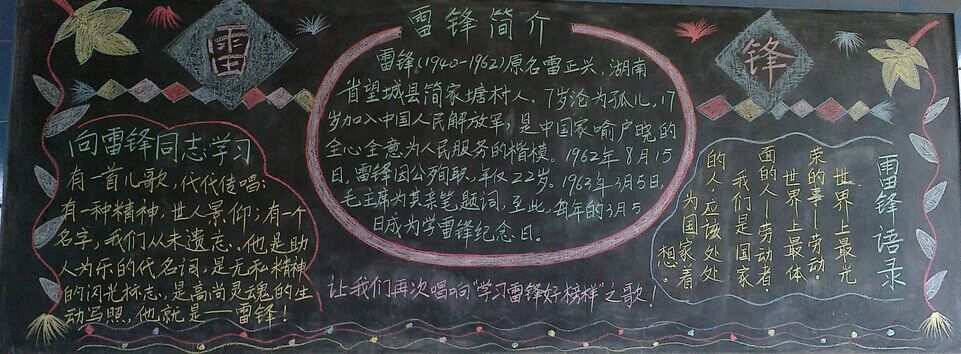 雷
锋
雷锋简介
雷锋(1940-1962)原名雷正兴,湖南
省望城县简家塘村人。7岁沦为孤儿,17
岁加入中国人民解放军,是中国家喻户晓的
全心全意为人民服务的楷模。1962年8月15
日,雷锋因公殉职,年仅22岁。1963年3月5日,
毛主席为其亲笔题词,至此,每年的3月5
日成为学雷锋纪念日。
向雷锋同志学习
有一首儿歌,代代传唱:
有一种精神,世人景仰;有一个
名字,我们从未遗忘。他是助
人为乐的代名词,是无私精神
的闪光标志,是高尚灵魂的生
动写照,他就是——雷锋!
雷锋语录
世界上最光
荣的事—劳动。
世界上最体
面的人—劳动者。
我们是国家
的人,应该处处
为国家着
想。
让我们再次唱响“学习雷锋好榜样”之歌!